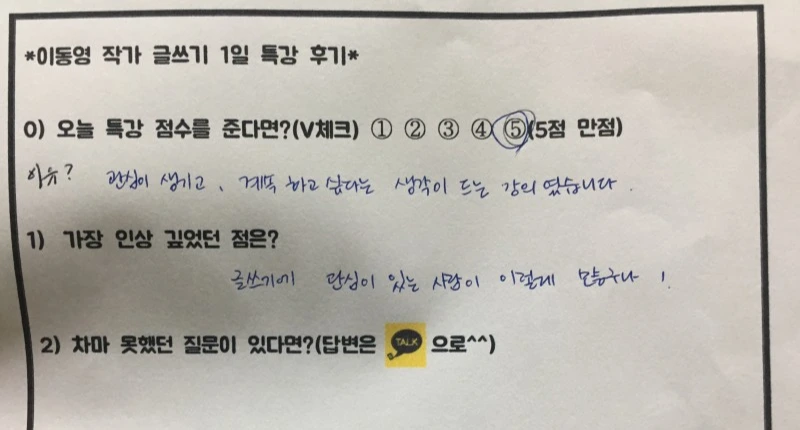 *이동영 작가 글쓰기 1일 특강 후기*
0) 오늘 특강 점수를 준다면?(V체크) ① ② ③ ④ ⑤(5점 만점)
이유? 관심이 생기고, 계속 하고 싶다는 생각이 드는 강의 였습니다.
1) 가장 인상 깊었던 점은?
글쓰기에 관심이 있는 사람이 이렇게 많구나!
2) 차마 못했던 질문이 있다면?(답변은 TALK 으로^^)